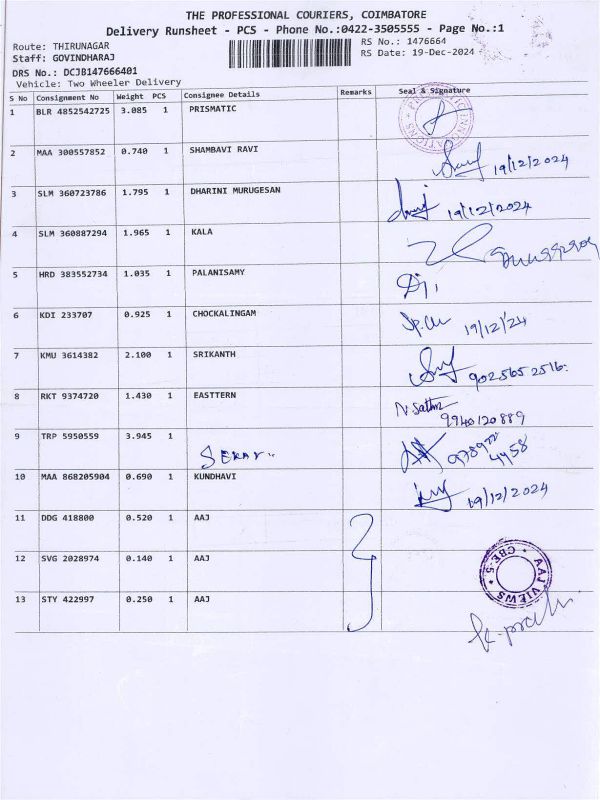 THE PROFESSIONAL COURIERS, COIMBATORE
Delivery Runsheet - PCS - Phone No.:0422-3505555 - Page No.:1
Route: THIRUNAGAR
RS No.: 1476664
Staff: GOVINDHARAJ
RS Date: 19-Dec-2024
DRS No.: DCJB147666401
Vehicle: Two Wheeler Delivery
S No Consignment No Weight PCS Consignee Details Remarks Seal & Signature
1 BLR 4852542725 3.085 1 PRISMATIC
2 MAA 300557852 0.740 1 SHAMBAVI RAVI 19/12/2024
3 SLM 360723786 1.795 1 DHARINI MURUGESAN 19/12/2024
4 SLM 360887294 1.965 1 KALA
5 HRD 383552734 1.035 1 PALANISAMY
6 KDI 233707 0.925 1 CHOCKALINGAM 19/12/24
7 KMU 3614382 2.100 1 SRIKANTH 9025652516
8 RKT 9374720 1.430 1 EASTTERN N. Sathiz 9940120889
9 TRP 5950559 3.945 1 SEKAR
10 MAA 868205904 0.690 1 KUNDHAVI 19/12/2024
11 DDG 418800 0.520 1 AAJ
12 SVG 2028974 0.140 1 AAJ
AAJ VIEWS CBE-5
13 STY 422997 0.250 1 AAJ